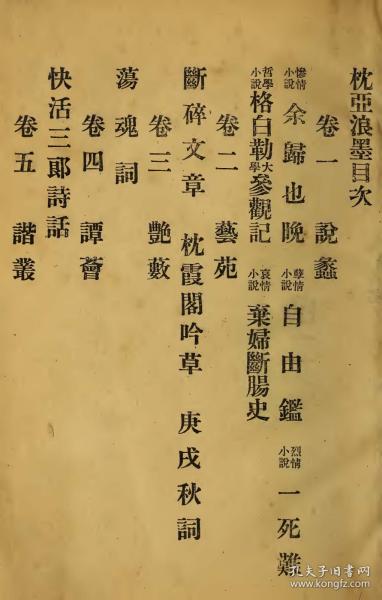 枕亞浪墨目次
卷一 說蠡
慘情小說 余歸也晚 孽情小說 自由鑑 烈情小說 一死難
哲學小說 格白勒大學參觀記 哀情小說 棄婦斷腸史
卷二 藝苑
斷碎文章 枕霞閣吟草 庚戌秋詞
卷三 艷藪
蕩魂詞
卷四 譚薈
快活三郎詩話
卷五 諧叢
孔夫子旧书网
book.kongfz.com